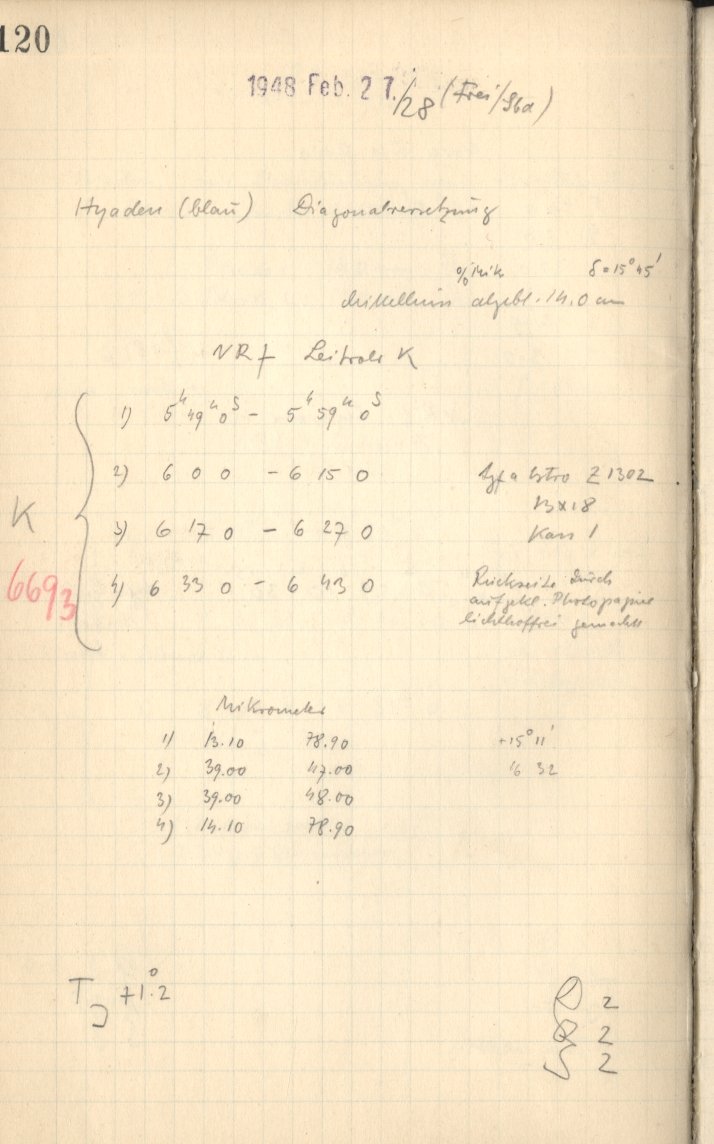 120
1948 Feb. 27./28 (Frei/Sba)
Hyaden (blau) Diagonalversetzung
δ = 15° 45'
abgebl. 14.0 cm
NRf Leitrohr K
1) 5h 49m 0s - 5h 59m 0s
2) 6 0 0 - 6 15 0
3) 6 17 0 - 6 27 0
4) 6 33 0 - 6 43 0
K
6693
Agfa Astro Z 1302
13x18
Kass 1
Rückseite durch
aufgekl. Photopapier
lichthoffrei gemacht
Mikrometer
1) 13.10 78.90 +15° 11'
2) 39.00 47.00 16 32
3) 39.00 48.00
4) 14.10 78.90
TJ +1.°2
D 2
R 2
S 2